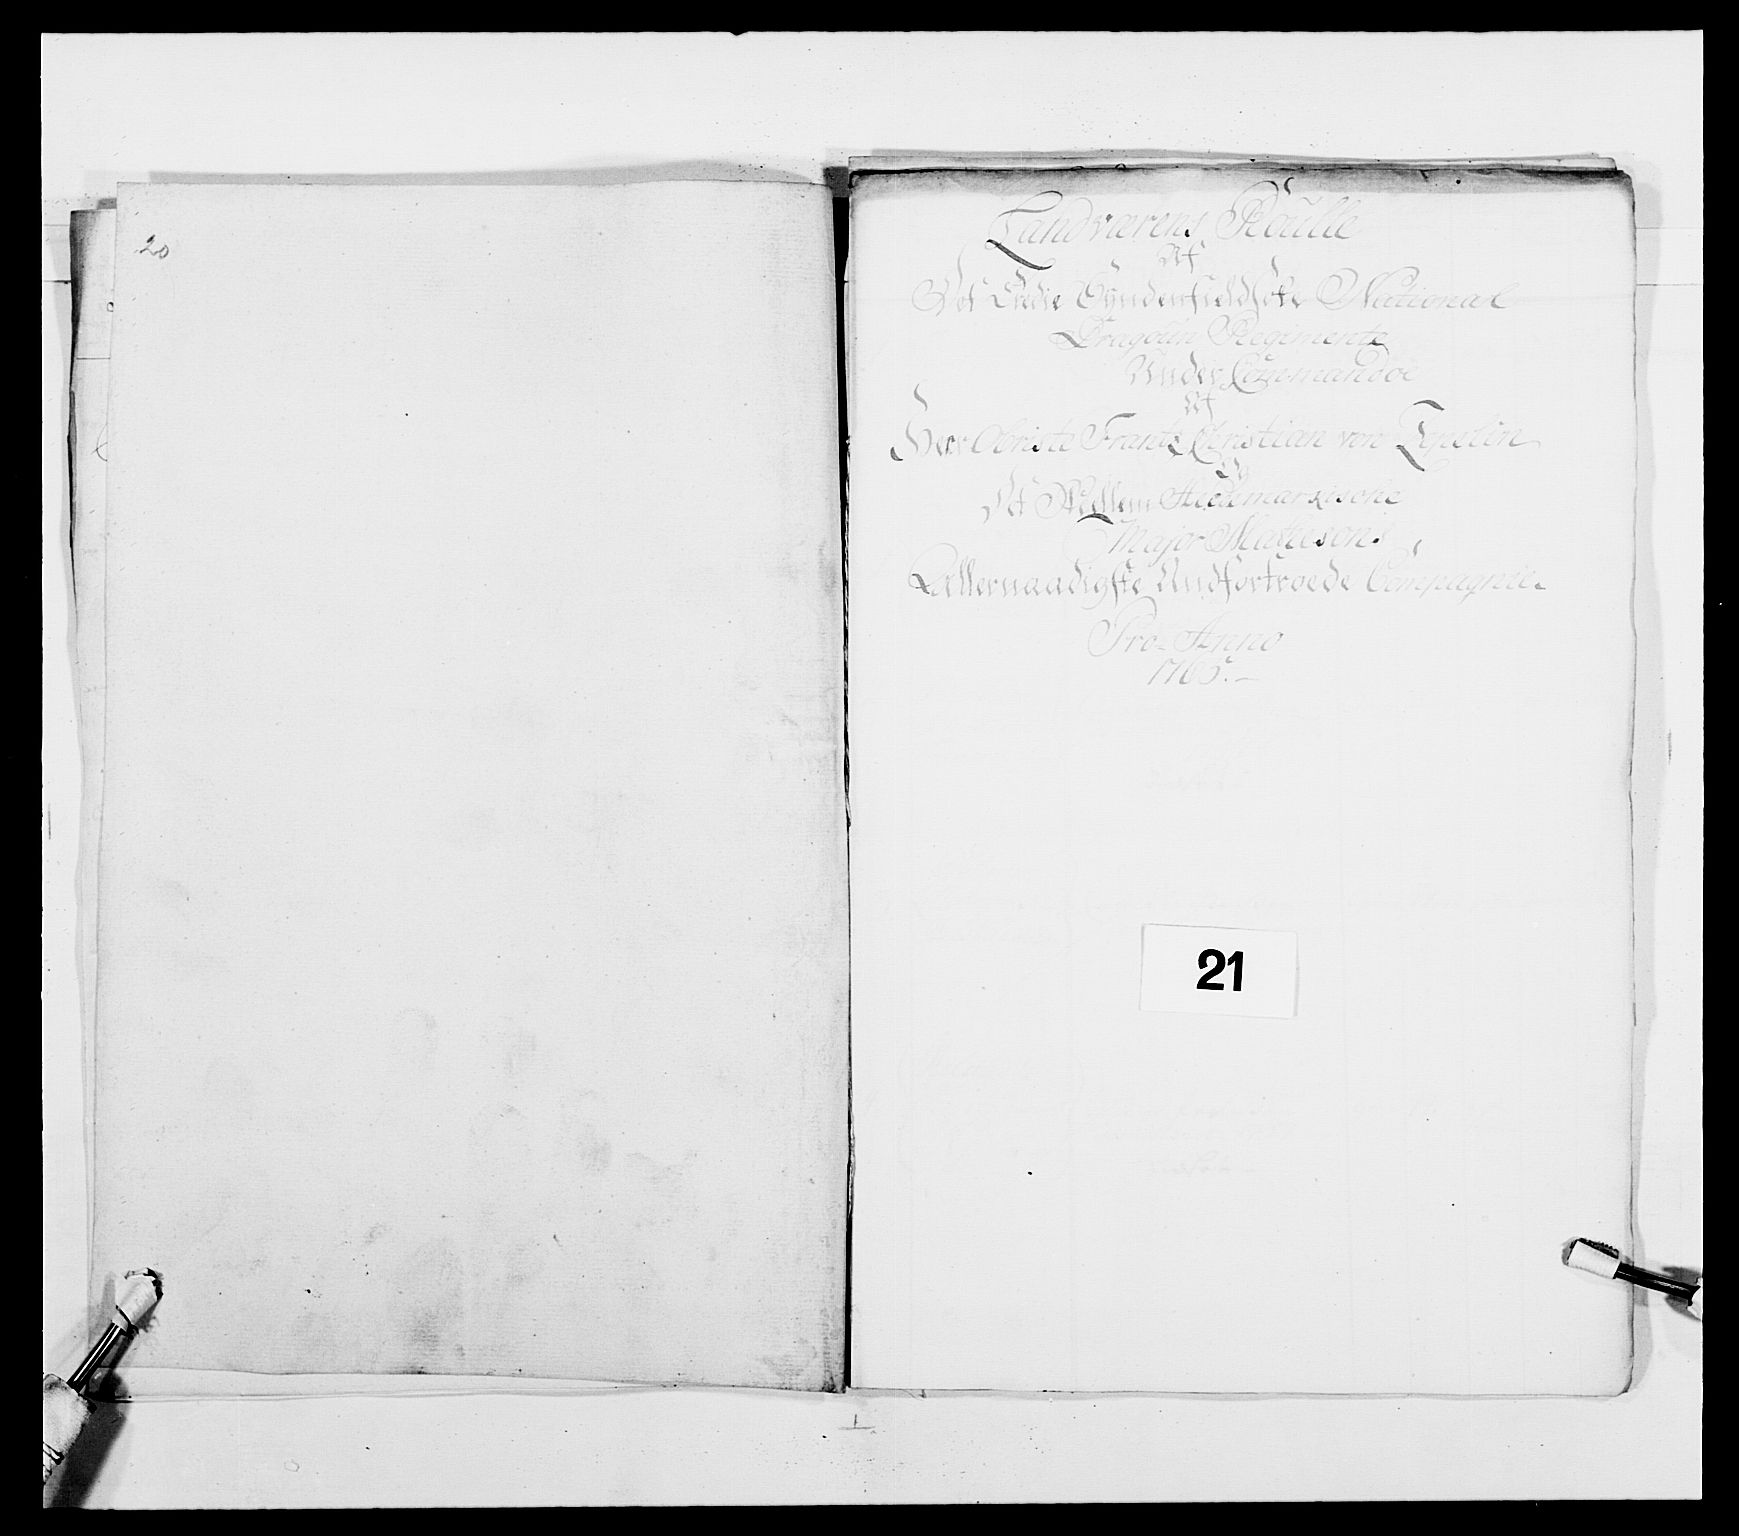 20
Landværens Roulle
Af
Det Tredie Synderfieldske National
Dragoun Regimente
Under Commandoe
Af
Herr Obriste Frantz Christian von
Og
Det Mellem Hedemarkische
Major Matiesons
Allernaadigste Andfortroede Compagnie.
Pro Anno
1765.
21